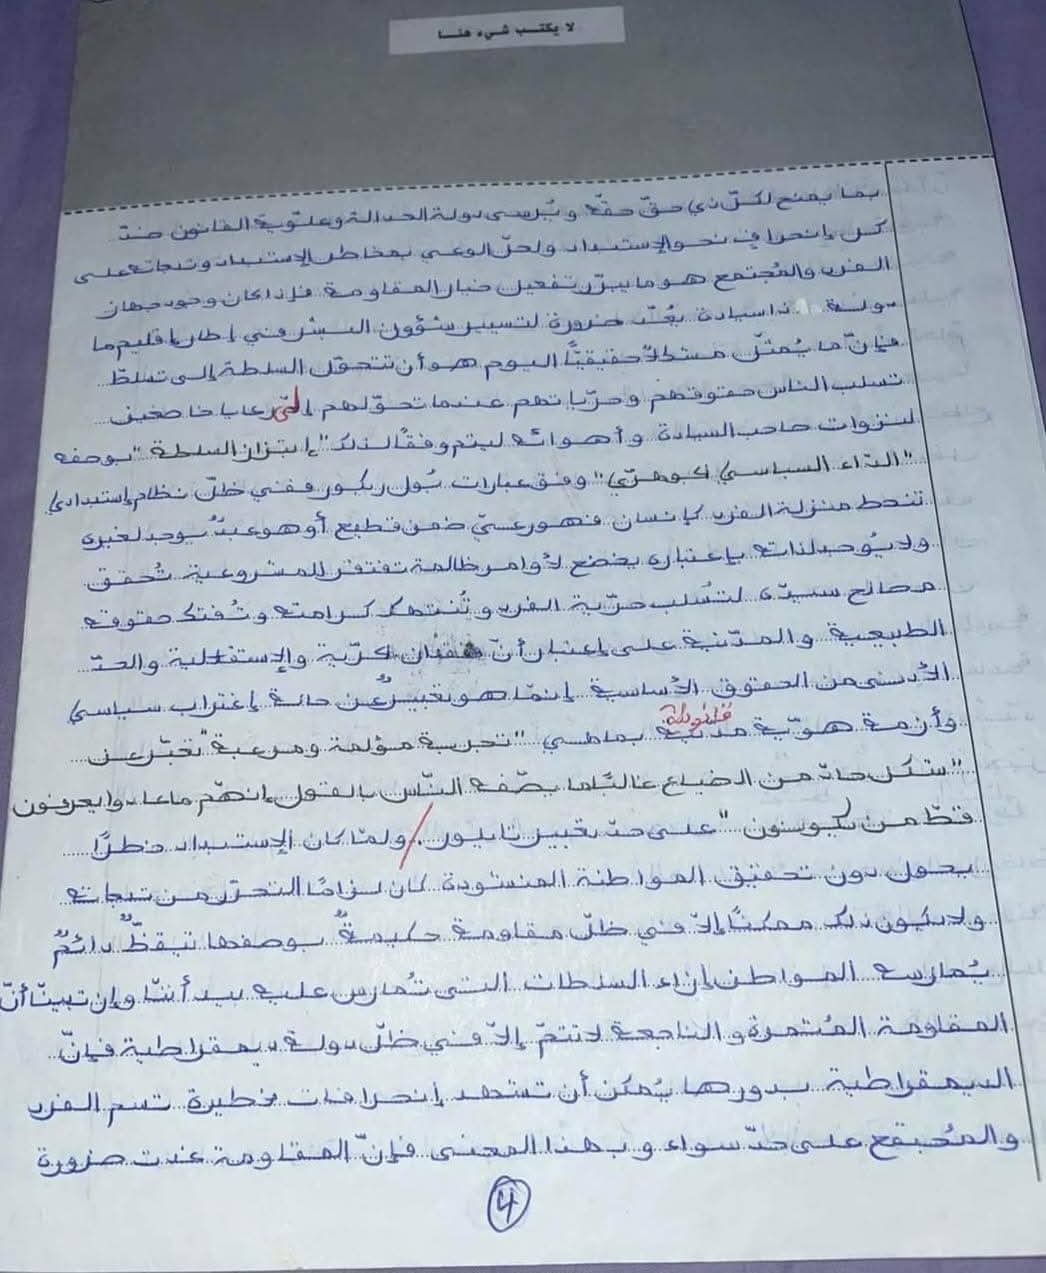 لا يكتب شيء هنا
بما يمنح لكلّ ذي حقّ حقّه ويُرسي دولة العدالة وعلويّة القانون ضدّ
كلّ إنحراف نحو الإستبداد ولعلّ الوعي بمخاطر الإستبداد وتبعاته على
الفرد والمُجتمع هو ما يبرّر تفعيل خيار المقاومة فإذا كان وجود جهاز
دولة ذا سيادة يُعدّ ضرورة لتسيير شؤون البشر في إطار إقليم ما
فإنّ ما يُمثّل مشكلاً حقيقيًّا اليوم هو أن تتحوّل السلطة إلى تسلّط
تسلب الناس حقوقهم وحرّياتهم عندما تحوّلهم إلى رعايا خاضعين
لنزوات صاحب السيادة وأهوائه ليتم وفقًا لذلك "إبتزاز السلطة" بوصفه
"الدّاء السياسي الجوهريّ" وفق عبارات بُول ريكور ففي ظلّ نظام إستبدادي
تنحط منزلة الفرد كإنسان فهو رعيّ ضمن قطيع أو هو عبدٌ يوجد لغيره
ولا يُوجد لذاته بإعتباره يخضع لأوامر ظالمة تفتقر للمشروعية تُحقق
مصالح سيّده لتُسلب حرّية الفرد وتُنتهك كرامته وتُفتك حقوقه
الطبيعية والمدّنية على إعتبار أنّ فقدان الحرّية والإستقلالية والحدّ
الأدنى من الحقوق الأساسية إنمّا هو تعبيرٌ عن حالة إغتراب سياسي
وأزمة هويّة مدنية قانونيّة بماهي "تجربة مؤلمة ومرعبة" تُعبّر عن
"شكل حادّ من الضياع غالبًا ما يصفه النّاس بالقول إنهّم ما عادوا يعرفون
قطّ من يكونون" على حدّ تعبير تايلور. / ولمّا كان الإستبداد خطرًا
يحول دون تحقيق المواطنة المنشودة كان لزامًا التحرّر من تبعاته
ولا يكون ذلك ممكنًا إلاّ في ظلّ مقاومة حكيمةٌ بوصفها تيقظٌ دائمٌ
يُمارسه المواطن إزاء السلطات التي تُمارس عليه بيد أننّا وإن تبينّا أنّ
المقاومة المُثمرة والناجعة لا تتمّ إلاّ في ظلّ دولة ديمقراطية فإنّ
الديمقراطية بدورها يُمكن أن تشهد إنحرافات خطيرة تسم الفرد
والمُجتمع على حدّ سواء وبهذا المعنى فإنّ المقاومة غدت ضرورة
4